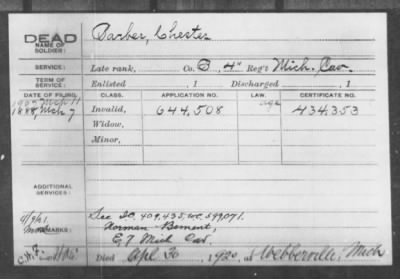 DEAD
NAME OF SOLDIER:
Barber, Chester
SERVICE:
Late rank, Co. B, 4" Reg't Mich. Cav.
TERM OF SERVICE:
Enlisted , 1 Discharged , 1
DATE OF FILING. CLASS. APPLICATION NO. LAW. CERTIFICATE NO.
1888, Mch 7 Invalid, 644,508 434,353
Widow,
Minor,
ADDITIONAL SERVICES:
REMARKS:
See 20, 409,435, WC, 599,071.
Norman Bement,
E, 7 Mich Cav.
Died Apl 30, 1920, at Webberville, Mich